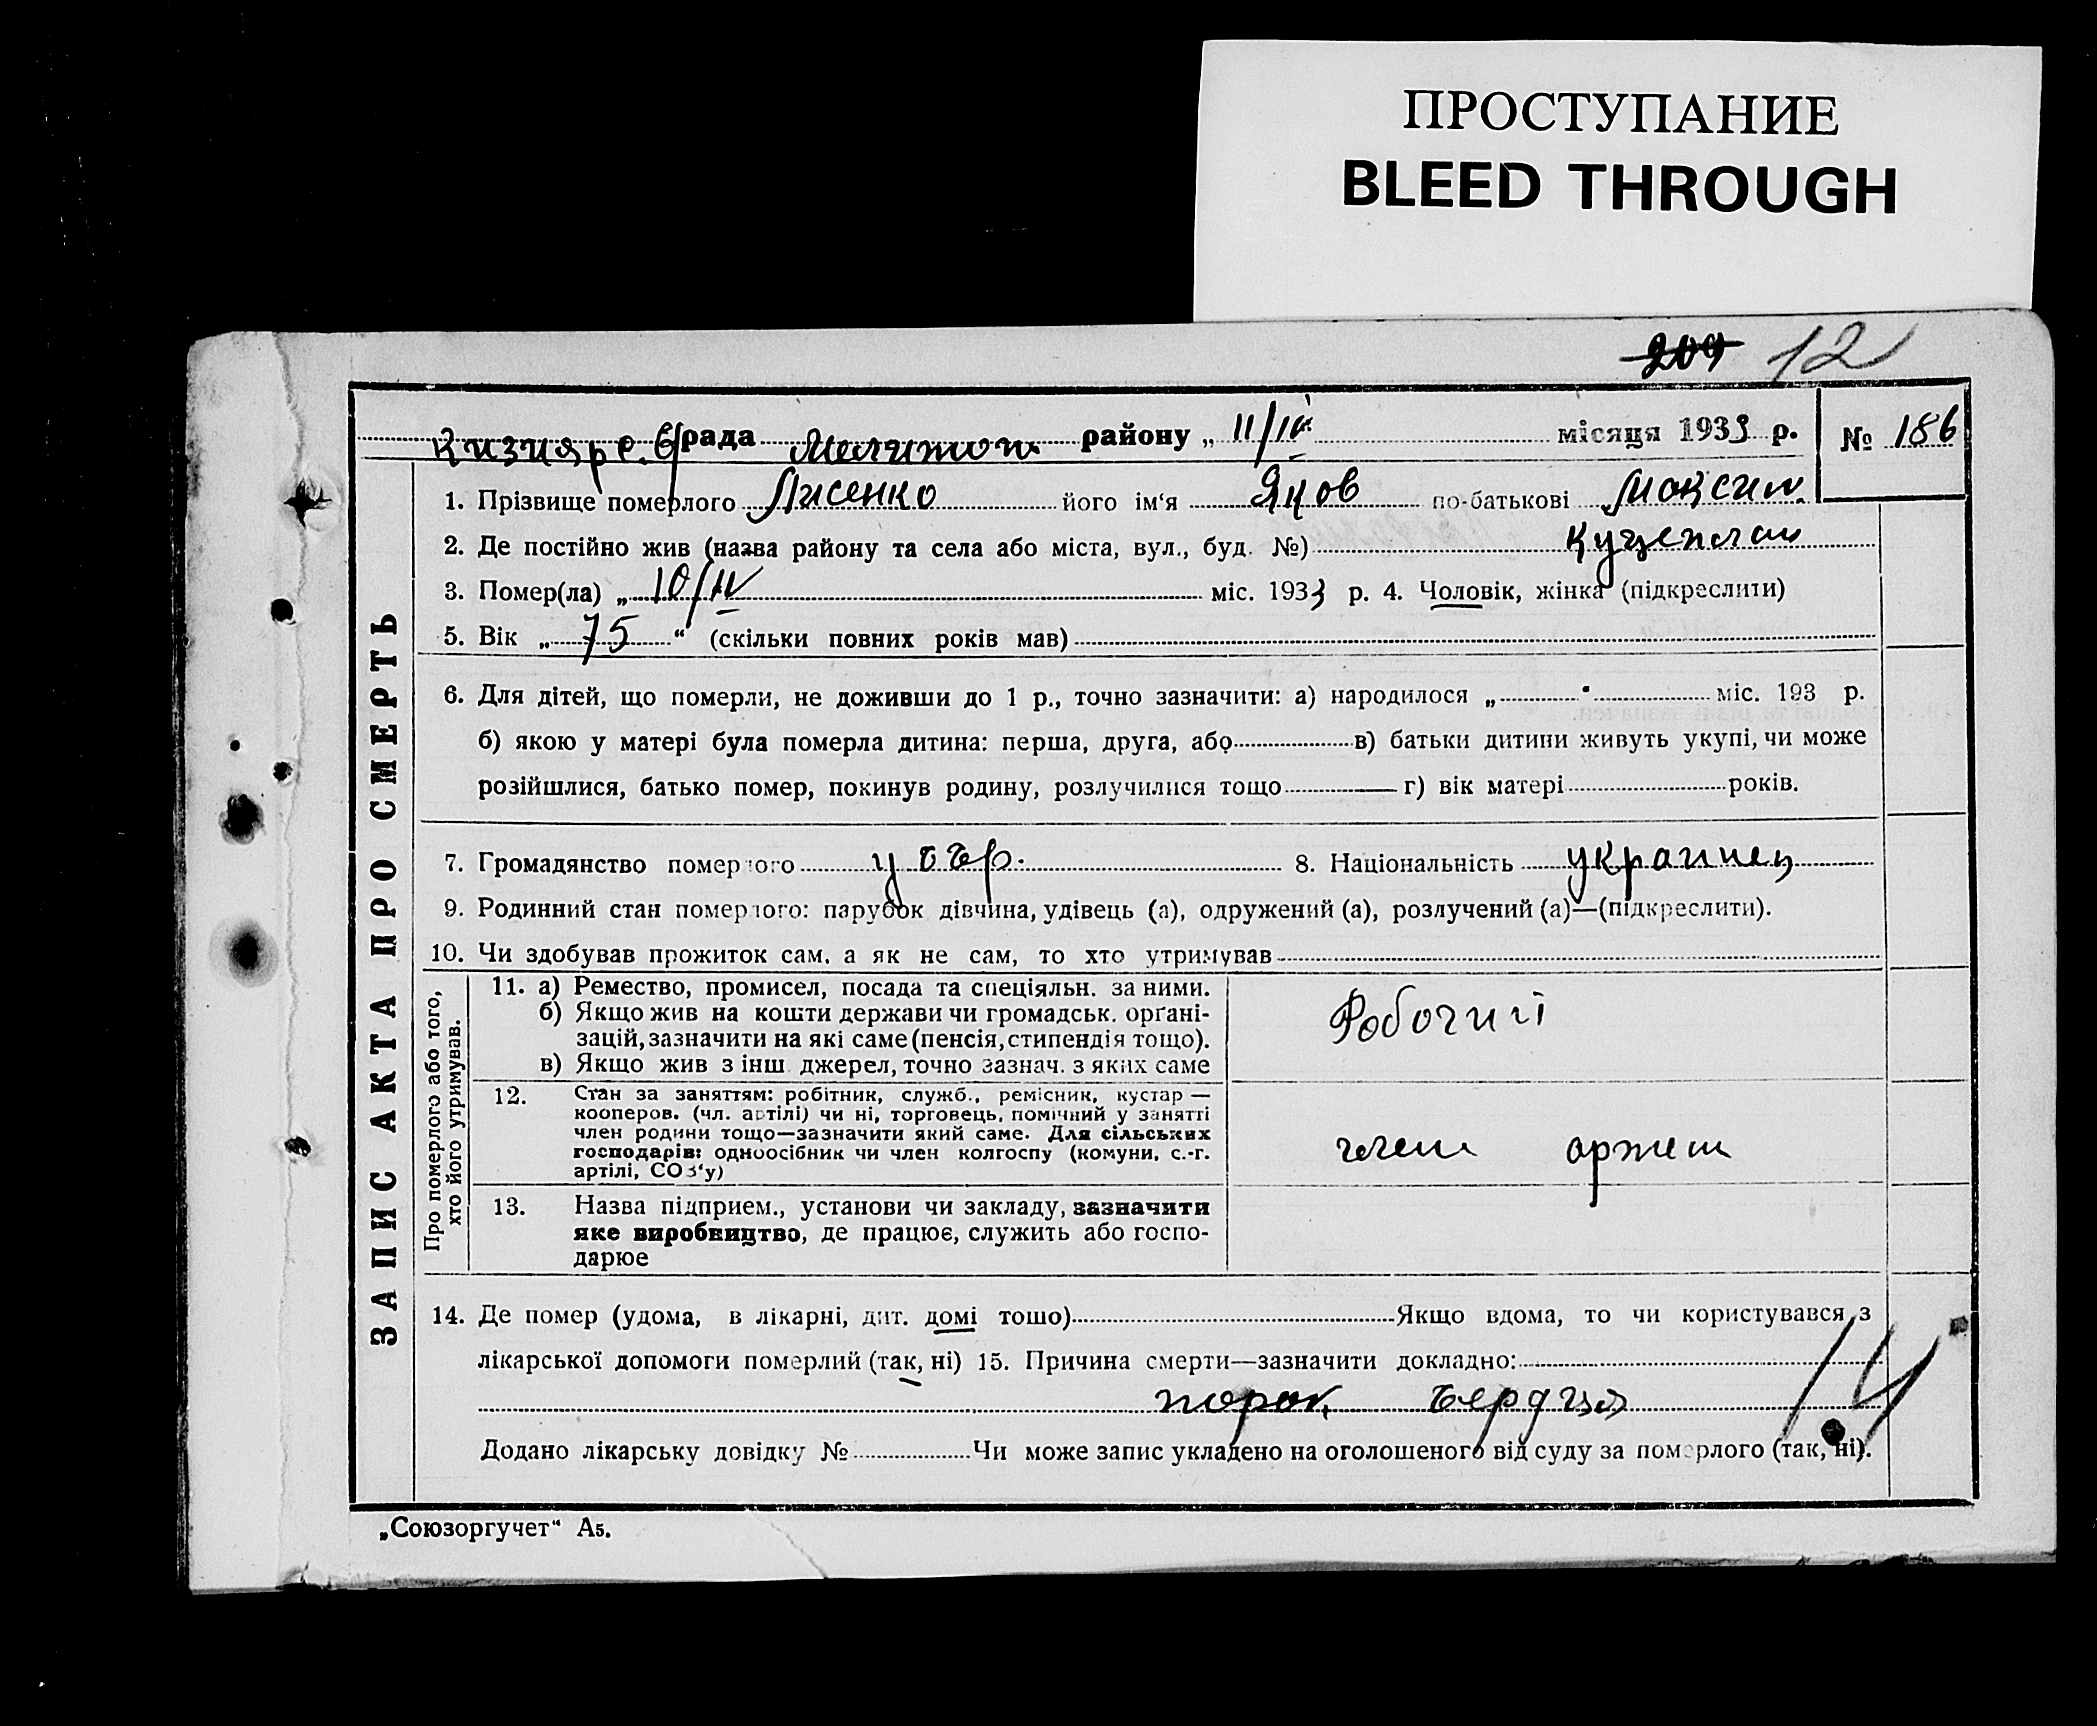 ПРОСТУПАНИЕ
BLEED THROUGH
209 12
Кизияр с. рада Мелитоп району „ 11/IV місяця 1933 р. № 186
ЗАПИС АКТА ПРО СМЕРТЬ
1. Прізвище померлого Лисенко його ім'я Яков по-батькові Максим
2. Де постійно жив (назва району та села або міста, вул., буд. №)
3. Помер(ла) „ 10/IV міс. 1933 р. 4. Чоловік, жінка (підкреслити)
5. Вік „ 75 “ (скільки повних років мав)
6. Для дітей, що померли, не доживши до 1 р., точно зазначити: а) народилося „ “ міс. 193 р.
б) якою у матері була померла дитина: перша, друга, або в) батьки дитини живуть укупі, чи може
розійшлися, батько помер, покинув родину, розлучилися тощо г) вік матері років.
7. Громадянство померлого 8. Національність украинец
9. Родинний стан померлого: парубок дівчина, удівець (а), одружений (а), розлучений (а)—(підкреслити).
10. Чи здобував прожиток сам, а як не сам, то хто утримував
Про померлого або того,
хто його утримував.
11. а) Ремество, промисел, посада та спеціяльн. за ними.
б) Якщо жив на кошти держави чи громадськ. орґані-
зацій, зазначити на які саме (пенсія, стипендія тощо).
в) Якщо жив з інш джерел, точно зазнач. з яких саме
Робочий
12. Стан за заняттям: робітник, служб., ремісник, кустар —
кооперов. (чл. артілі) чи ні, торговець, помічний у занятті
член родини тощо—зазначити який саме. Для сільських
господарів: одноосібник чи член колгоспу (комуни, с.-г.
артілі, СОЗ'у)
член артели
13. Назва підприєм., установи чи закладу, зазначити
яке виробництво, де працює, служить або госпо-
дарює
14. Де помер (удома, в лікарні, дит. домі тощо) Якщо вдома, то чи користувався з
лікарської допомоги померлий (так, ні) 15. Причина смерти—зазначити докладно:
порок сердца 14
Додано лікарську довідку № Чи може запис укладено на оголошеного від суду за померлого (так, ні).
„Союзоргучет“ А5.